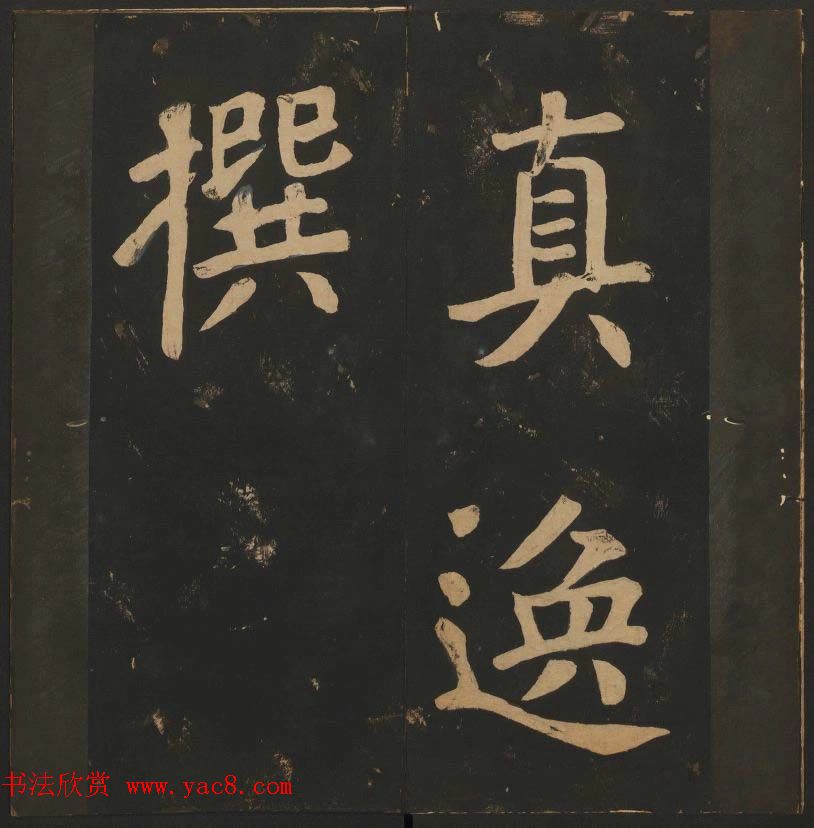 真逸
撰
书法欣赏 www.yac8.com